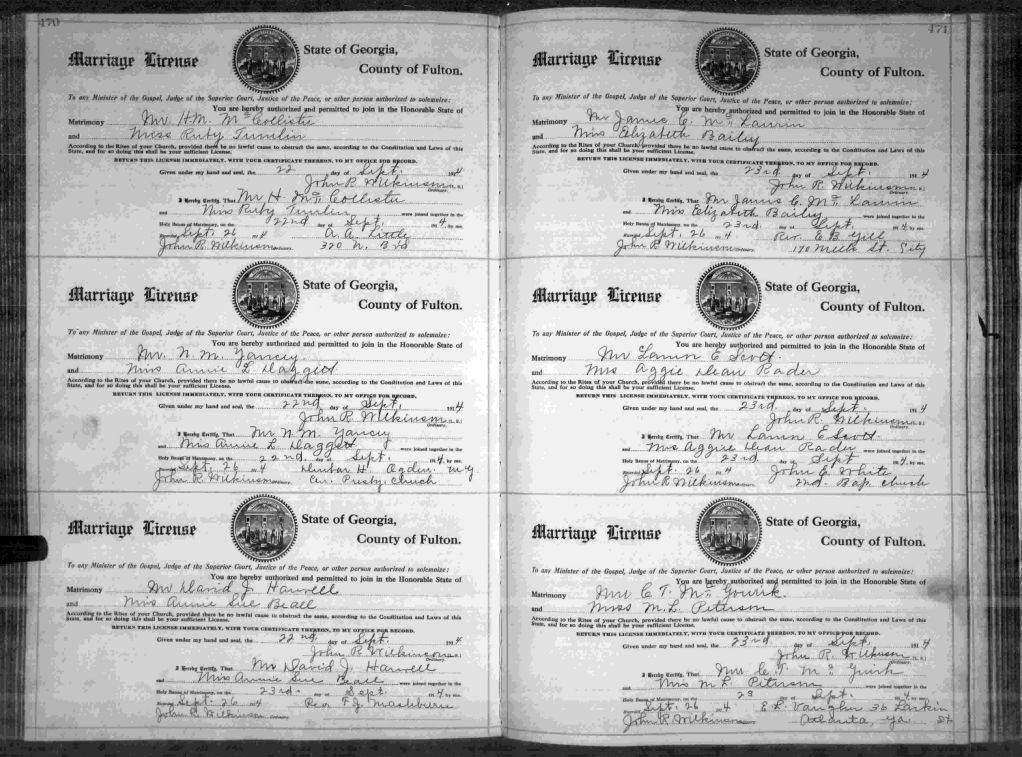 470
Marriage License
State of Georgia,
County of Fulton.
To any Minister of the Gospel, Judge of the Superior Court, Justice of the Peace, or other person authorized to solemnize:
You are hereby authorized and permitted to join in the Honorable State of
Matrimony Mr H.M. McCollister
and Miss Ruby Tumlin
According to the Rites of your Church, provided there be no lawful cause to obstruct the same, according to the Constitution and Laws of this
State, and for so doing this shall be your sufficient License.
RETURN THIS LICENSE IMMEDIATELY, WITH YOUR CERTIFICATE THEREON, TO MY OFFICE FOR RECORD.
Given under my hand and seal, the 22 day of Sept. 1914
John R. Wilkinson (L. S.)
Ordinary.
I Hereby Certify, That Mr H. McCollister
and Miss Ruby Tumlin were joined together in the
Holy Banns of Matrimony, on the 22nd day of Sept. 1914, by me.
Recorded Sept. 26 1914 A. A. Little
John R Wilkinson Ordinary 320 N. Bvd
Marriage License
State of Georgia,
County of Fulton.
To any Minister of the Gospel, Judge of the Superior Court, Justice of the Peace, or other person authorized to solemnize:
You are hereby authorized and permitted to join in the Honorable State of
Matrimony Mr. N. M. Yancey
and Miss Annie L Daggett
According to the Rites of your Church, provided there be no lawful cause to obstruct the same, according to the Constitution and Laws of this
State, and for so doing this shall be your sufficient License.
RETURN THIS LICENSE IMMEDIATELY, WITH YOUR CERTIFICATE THEREON, TO MY OFFICE FOR RECORD.
Given under my hand and seal, the 22nd day of Sept. 1914
John R Wilkinson (L. S.)
Ordinary.
I Hereby Certify, That Mr N.M. Yancey
and Miss Annie L. Daggett were joined together in the
Holy Banns of Matrimony, on the 22nd day of Sept. 1914, by me.
Recorded Sept. 26 1914 Dunbar H. Ogden
John R Wilkinson Ordinary Cen. Presby. Church
Marriage License
State of Georgia,
County of Fulton.
To any Minister of the Gospel, Judge of the Superior Court, Justice of the Peace, or other person authorized to solemnize:
You are hereby authorized and permitted to join in the Honorable State of
Matrimony Mr David J. Harvell
and Miss Annie Sue Beall
According to the Rites of your Church, provided there be no lawful cause to obstruct the same, according to the Constitution and Laws of this
State, and for so doing this shall be your sufficient License.
RETURN THIS LICENSE IMMEDIATELY, WITH YOUR CERTIFICATE THEREON, TO MY OFFICE FOR RECORD.
Given under my hand and seal, the 22nd day of Sept. 1914
John R. Wilkinson (L. S.)
Ordinary.
I Hereby Certify, That Mr David J. Harvell
and Miss Annie Sue Beall were joined together in the
Holy Banns of Matrimony, on the 23rd. day of Sept. 1914, by me.
Recorded Sept. 26 1914 Rev F. J. Mashburn
John R. Wilkinson Ordinary
471
Marriage License
State of Georgia,
County of Fulton.
To any Minister of the Gospel, Judge of the Superior Court, Justice of the Peace, or other person authorized to solemnize:
You are hereby authorized and permitted to join in the Honorable State of
Matrimony Mr James C. McLaurin
and Miss Elizabeth Bailey
According to the Rites of your Church, provided there be no lawful cause to obstruct the same, according to the Constitution and Laws of this
State, and for so doing this shall be your sufficient License.
RETURN THIS LICENSE IMMEDIATELY, WITH YOUR CERTIFICATE THEREON, TO MY OFFICE FOR RECORD.
Given under my hand and seal, the 23rd day of Sept. 1914
John R. Wilkinson (L. S.)
Ordinary.
I Hereby Certify, That Mr James C. McLaurin
and Miss Elizabeth Bailey were joined together in the
Holy Banns of Matrimony, on the 23rd. day of Sept. 1914, by me.
Recorded Sept. 26 1914 Rev. E B. Gill
John R Wilkinson Ordinary 170 Mills St. City
Marriage License
State of Georgia,
County of Fulton.
To any Minister of the Gospel, Judge of the Superior Court, Justice of the Peace, or other person authorized to solemnize:
You are hereby authorized and permitted to join in the Honorable State of
Matrimony Mr Lamon E Scott.
and Mrs Aggie Dean Rader
According to the Rites of your Church, provided there be no lawful cause to obstruct the same, according to the Constitution and Laws of this
State, and for so doing this shall be your sufficient License.
RETURN THIS LICENSE IMMEDIATELY, WITH YOUR CERTIFICATE THEREON, TO MY OFFICE FOR RECORD.
Given under my hand and seal, the 23rd day of Sept. 1914
John R. Wilkinson (L. S.)
Ordinary.
I Hereby Certify, That Mr Lamon E Scott.
and Mrs Aggie Dean Rader were joined together in the
Holy Banns of Matrimony, on the 23rd day of Sept 1914, by me.
Recorded Sept. 26 1914 John E. White
John R Wilkinson Ordinary 2nd. Bap. Church
Marriage License
State of Georgia,
County of Fulton.
To any Minister of the Gospel, Judge of the Superior Court, Justice of the Peace, or other person authorized to solemnize:
You are hereby authorized and permitted to join in the Honorable State of
Matrimony Mr C. T. McGouirk.
and Miss M.L. Peterson
According to the Rites of your Church, provided there be no lawful cause to obstruct the same, according to the Constitution and Laws of this
State, and for so doing this shall be your sufficient License.
RETURN THIS LICENSE IMMEDIATELY, WITH YOUR CERTIFICATE THEREON, TO MY OFFICE FOR RECORD.
Given under my hand and seal, the 23rd. day of Sept. 1914
John R. Wilkinson (L. S.)
Ordinary.
I Hereby Certify, That Mr C. T. McGuirk
and Miss M L. Peterson were joined together in the
Holy Banns of Matrimony, on the 23 day of Sept. 1914, by me.
Recorded Sept. 26 1914 E L. Vaughn 36 Larkin
John R Wilkinson Ordinary Atlanta, Ga. St